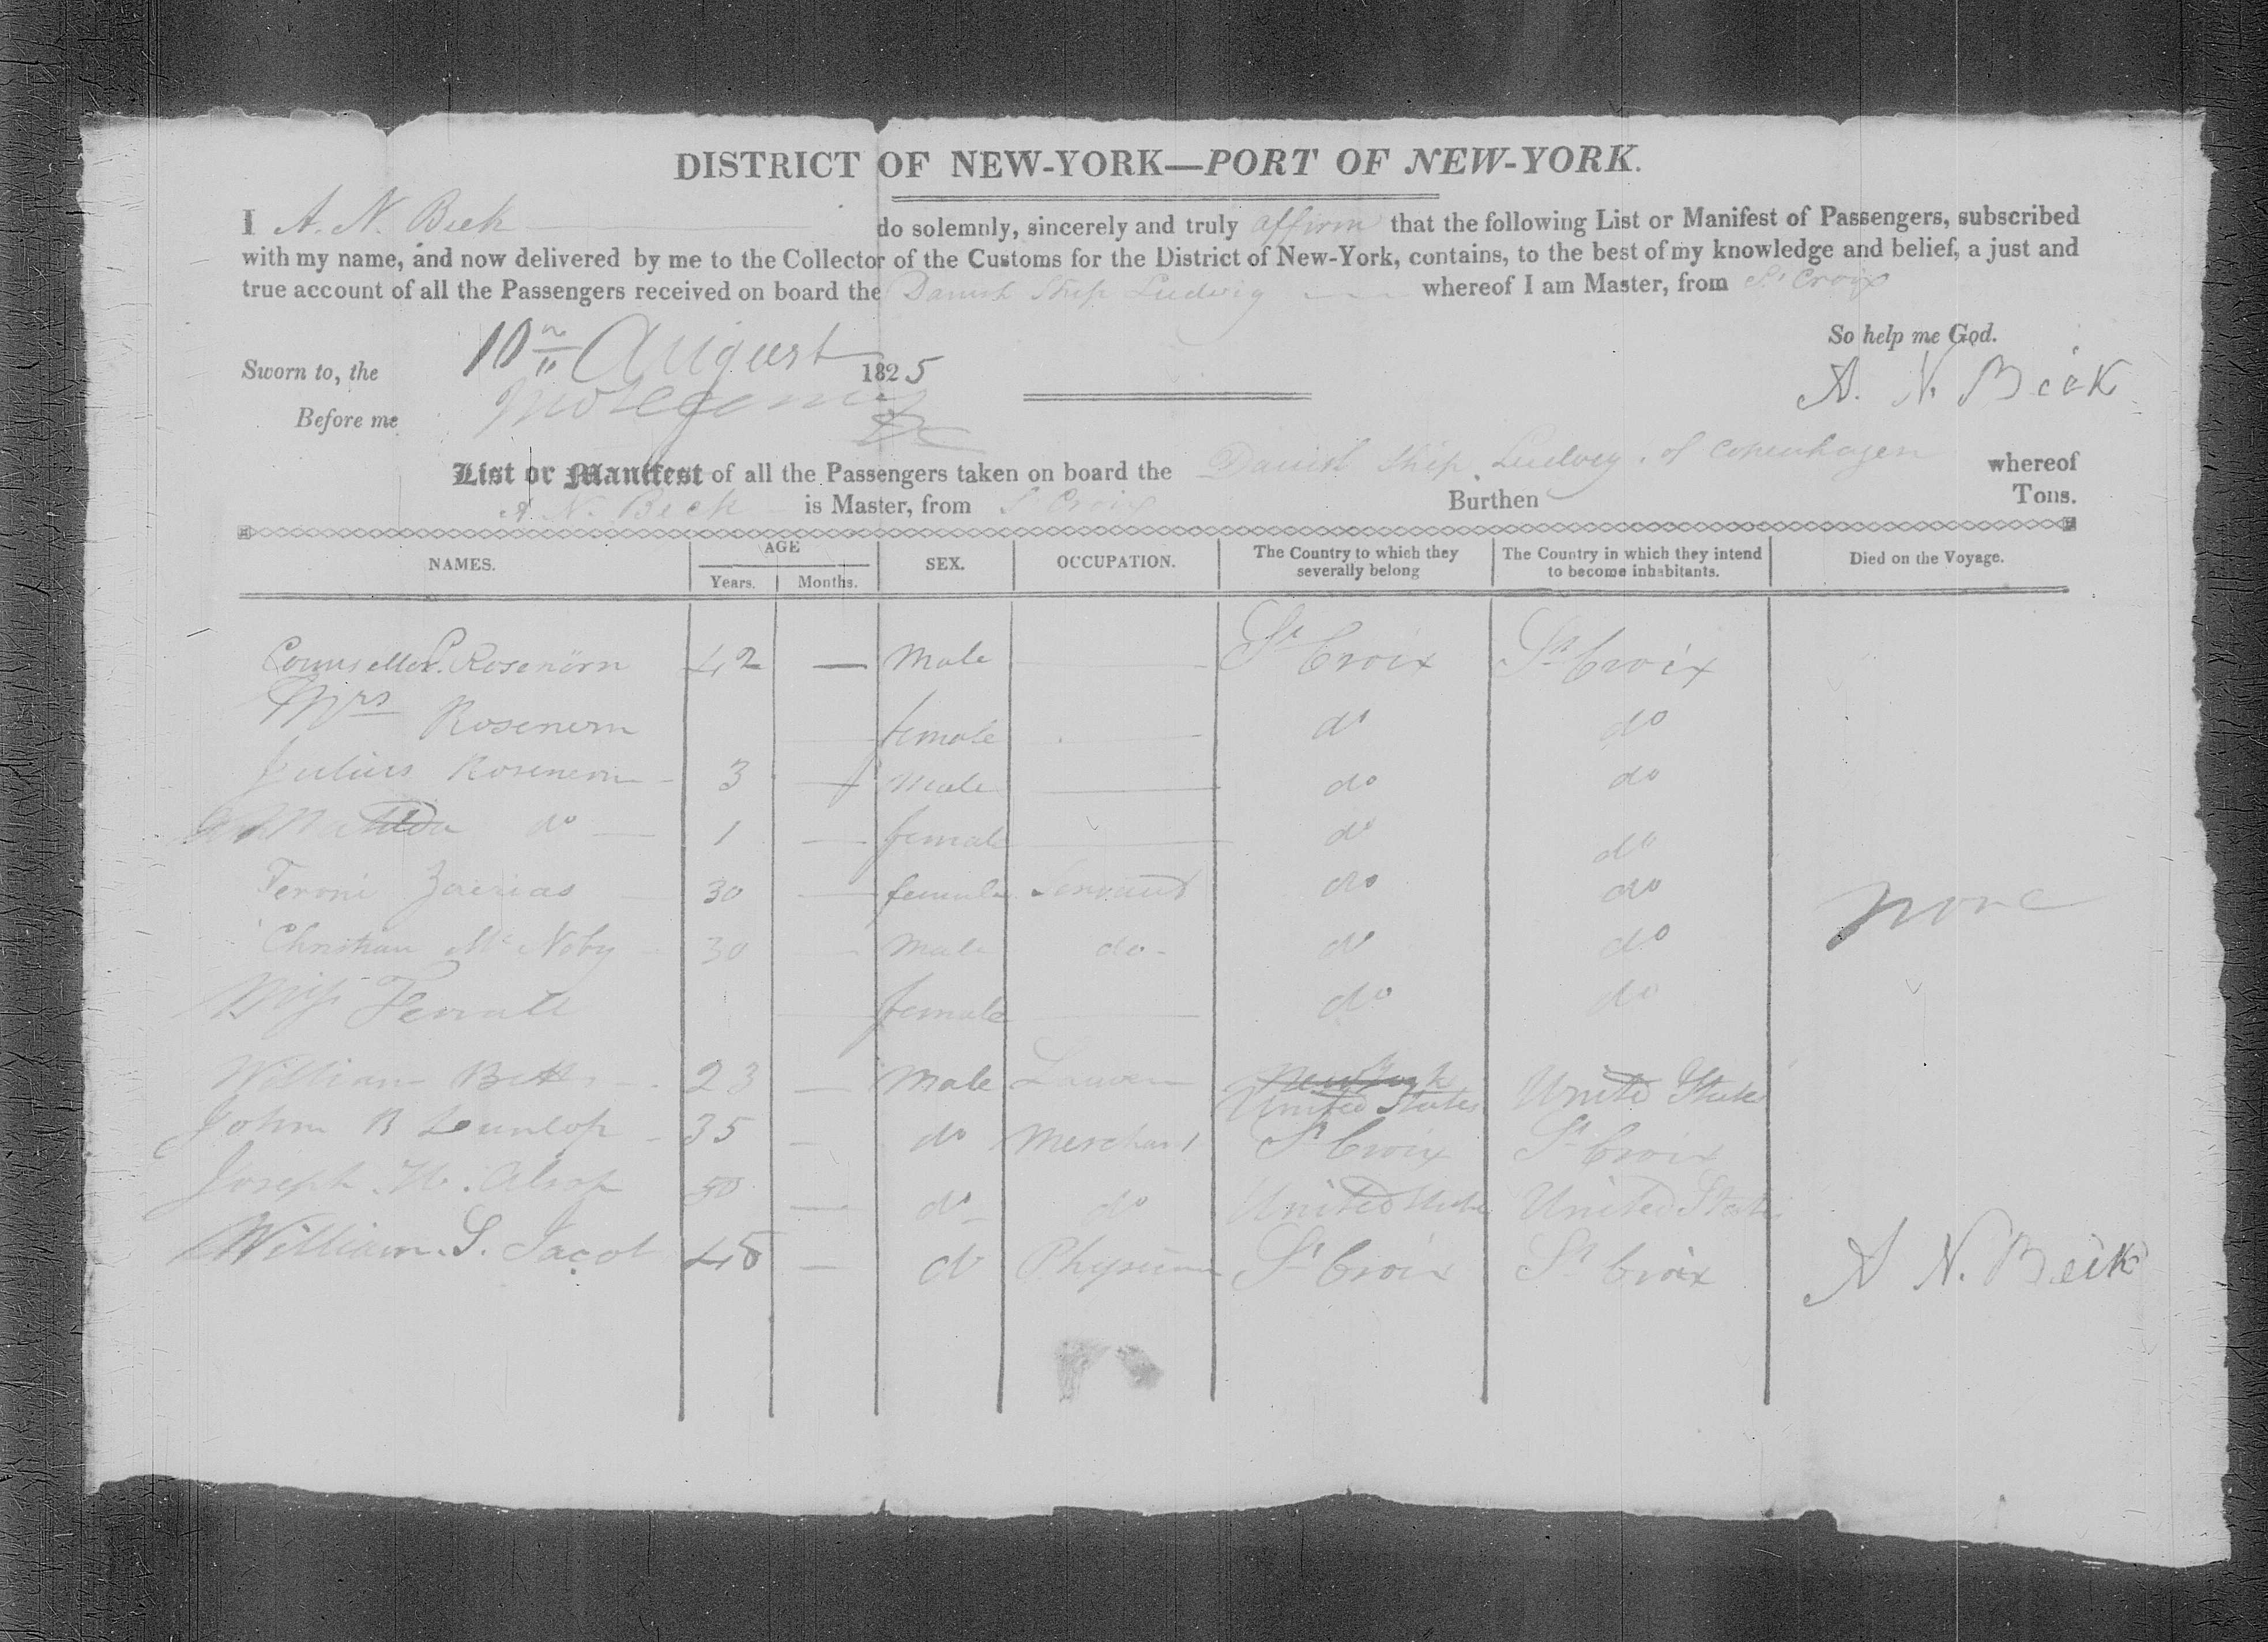 DISTRICT OF NEW-YORK—PORT OF NEW-YORK.
I A. N. Beck do solemnly, sincerely and truly affirm that the following List or Manifest of Passengers, subscribed
with my name, and now delivered by me to the Collector of the Customs for the District of New-York, contains, to the best of my knowledge and belief, a just and
true account of all the Passengers received on board the Danish Ship Ludvig whereof I am Master, from St Croix
So help me God.
Sworn to, the 10th August 1825
A. N. Beck
Before me
List or Manifest of all the Passengers taken on board the Danish Ship Ludvig of Copenhagen whereof
A N. Beck is Master, from St Croix Burthen Tons.
NAMES. AGE Years. Months. SEX. OCCUPATION. The Country to which they severally belong The Country in which they intend to become inhabitants. Died on the Voyage.
Counsellor P. Rosenörn 42 — Male — St Croix St Croix
Mrs Rosenorn — female — do do
Julius Rosenorn 3 — Male — do do
Matilda do 1 — female — do do
30 — female Servant do do none
Christian Mc Noby 30 — Male do do do
Miss — female — do do
William Betts 23 — Male United States United States
John B Dunlop 35 — do Merchant St Croix St Croix
Joseph W. Alsop 50 — do do United States United States
William. S. Jacob 45 — do Physician St Croix St Croix
A N. Beck